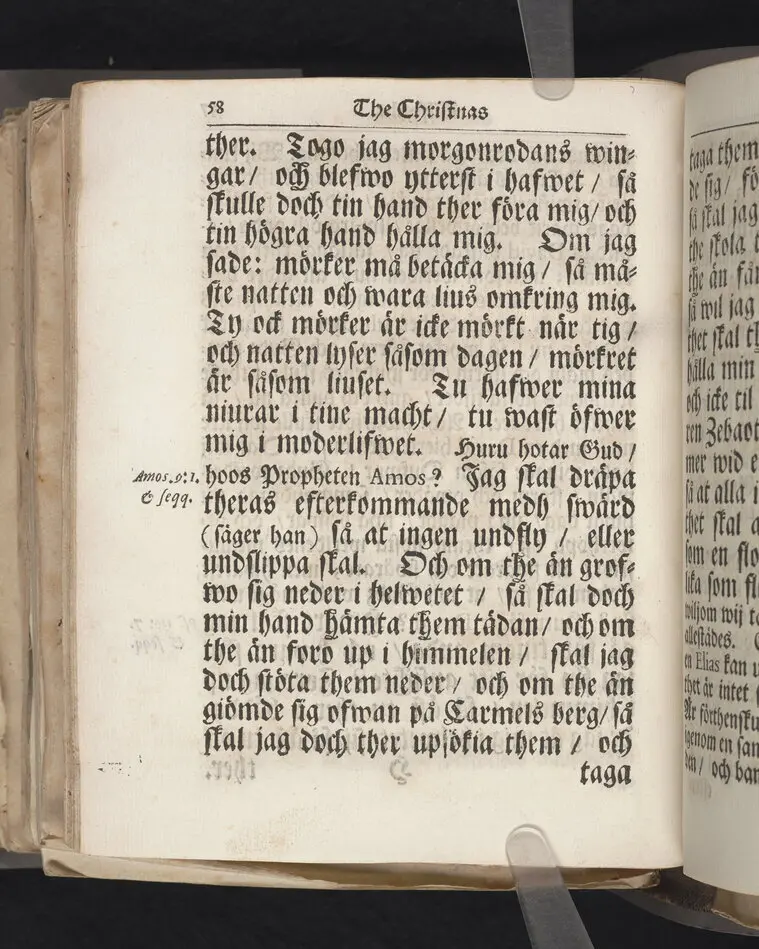 58 The Christnas
ther. Togo jag morgonrodans win-
gar/ och blefwo ytterst i hafwet / så
skulle doch tin hand ther föra mig/ och
tin högra hand hålla mig. Om jag
sade: mörker må betäcka mig / så må-
ste natten och wara lius omkring mig.
Ty ock mörker är icke mörkt när tig /
och natten lyser såsom dagen / mörkret
är såsom liuset. Tu hafwer mina
niurar i tine macht/ tu wast öfwer
mig i moderlifwet. Huru hotar Gud /
Amos. 9: 1. hoos Propheten Amos? Jag skal dräpa
& seqq. theras efterkommande medh swärd
(säger han) så at ingen undfly / eller
undslippa skal. Och om the än grof-
wo sig neder i helwetet / så skal doch
min hand hämta them tädan/ och om
the än foro up i himmelen / skal jag
doch stöta them neder / och om the än
giömde sig ofwan på Carmels berg/ så
skal jag doch ther upsökia them / och
taga
taga them
de sig/ fö
så skal jag
the skola
the än får
så wil jag
thet skal
hålla min
och icke til
ren Zebaot
mer wid
så at alla i
thet skal
som en flo
lika som
wiljom wij
allestädes.
en Elias kan
thet är intet
Är förthensku
genom en san
den/ och bar